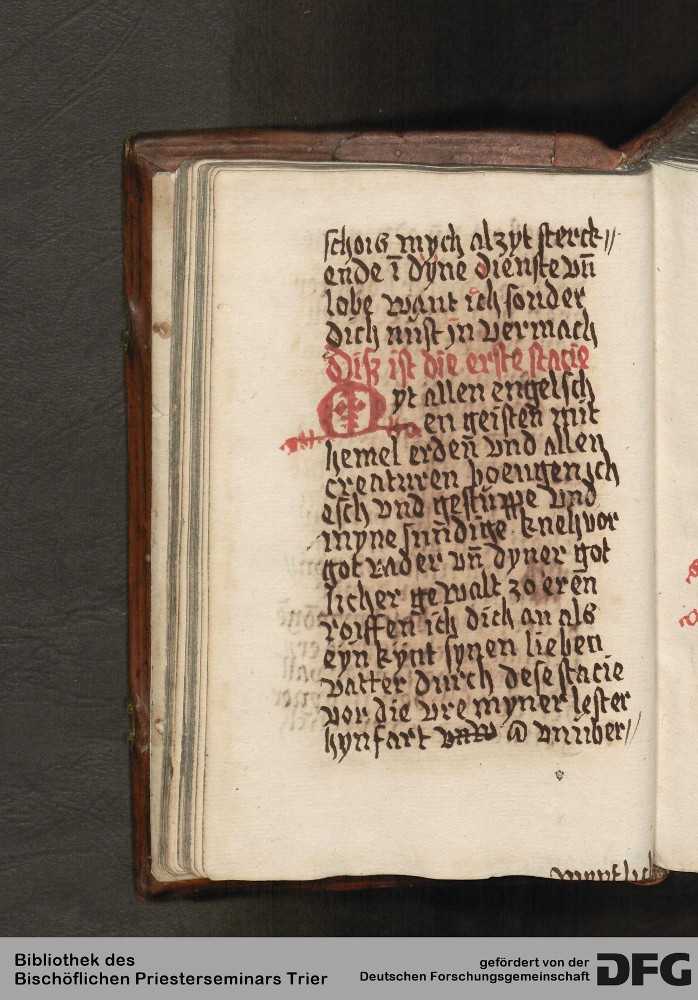 schois mych alzyt sterck//
ende ī dyne dienste vn̄
lobe want ich sonder
dich nust jn vermach
Diß ist die erste stacie
Myt allen engelsch
en geisten mit
hemel erden̄ vnd allen
creaturen boeugen ich
esch vnd gestuppe vnd
myne sun̄dige knehvor
got vader vn̄ dyner got
licher gewalt zo eren
roiffen ich dich an als
eyn kynt synen lieben
vatter durch dese stacie
vor die vre myner lester
hynfart @ vnuber//
Bibliothek des
Bischöflichen Priesterseminars Trier
gefördert von der
Deutschen Forschungsgemeinschaft DFG